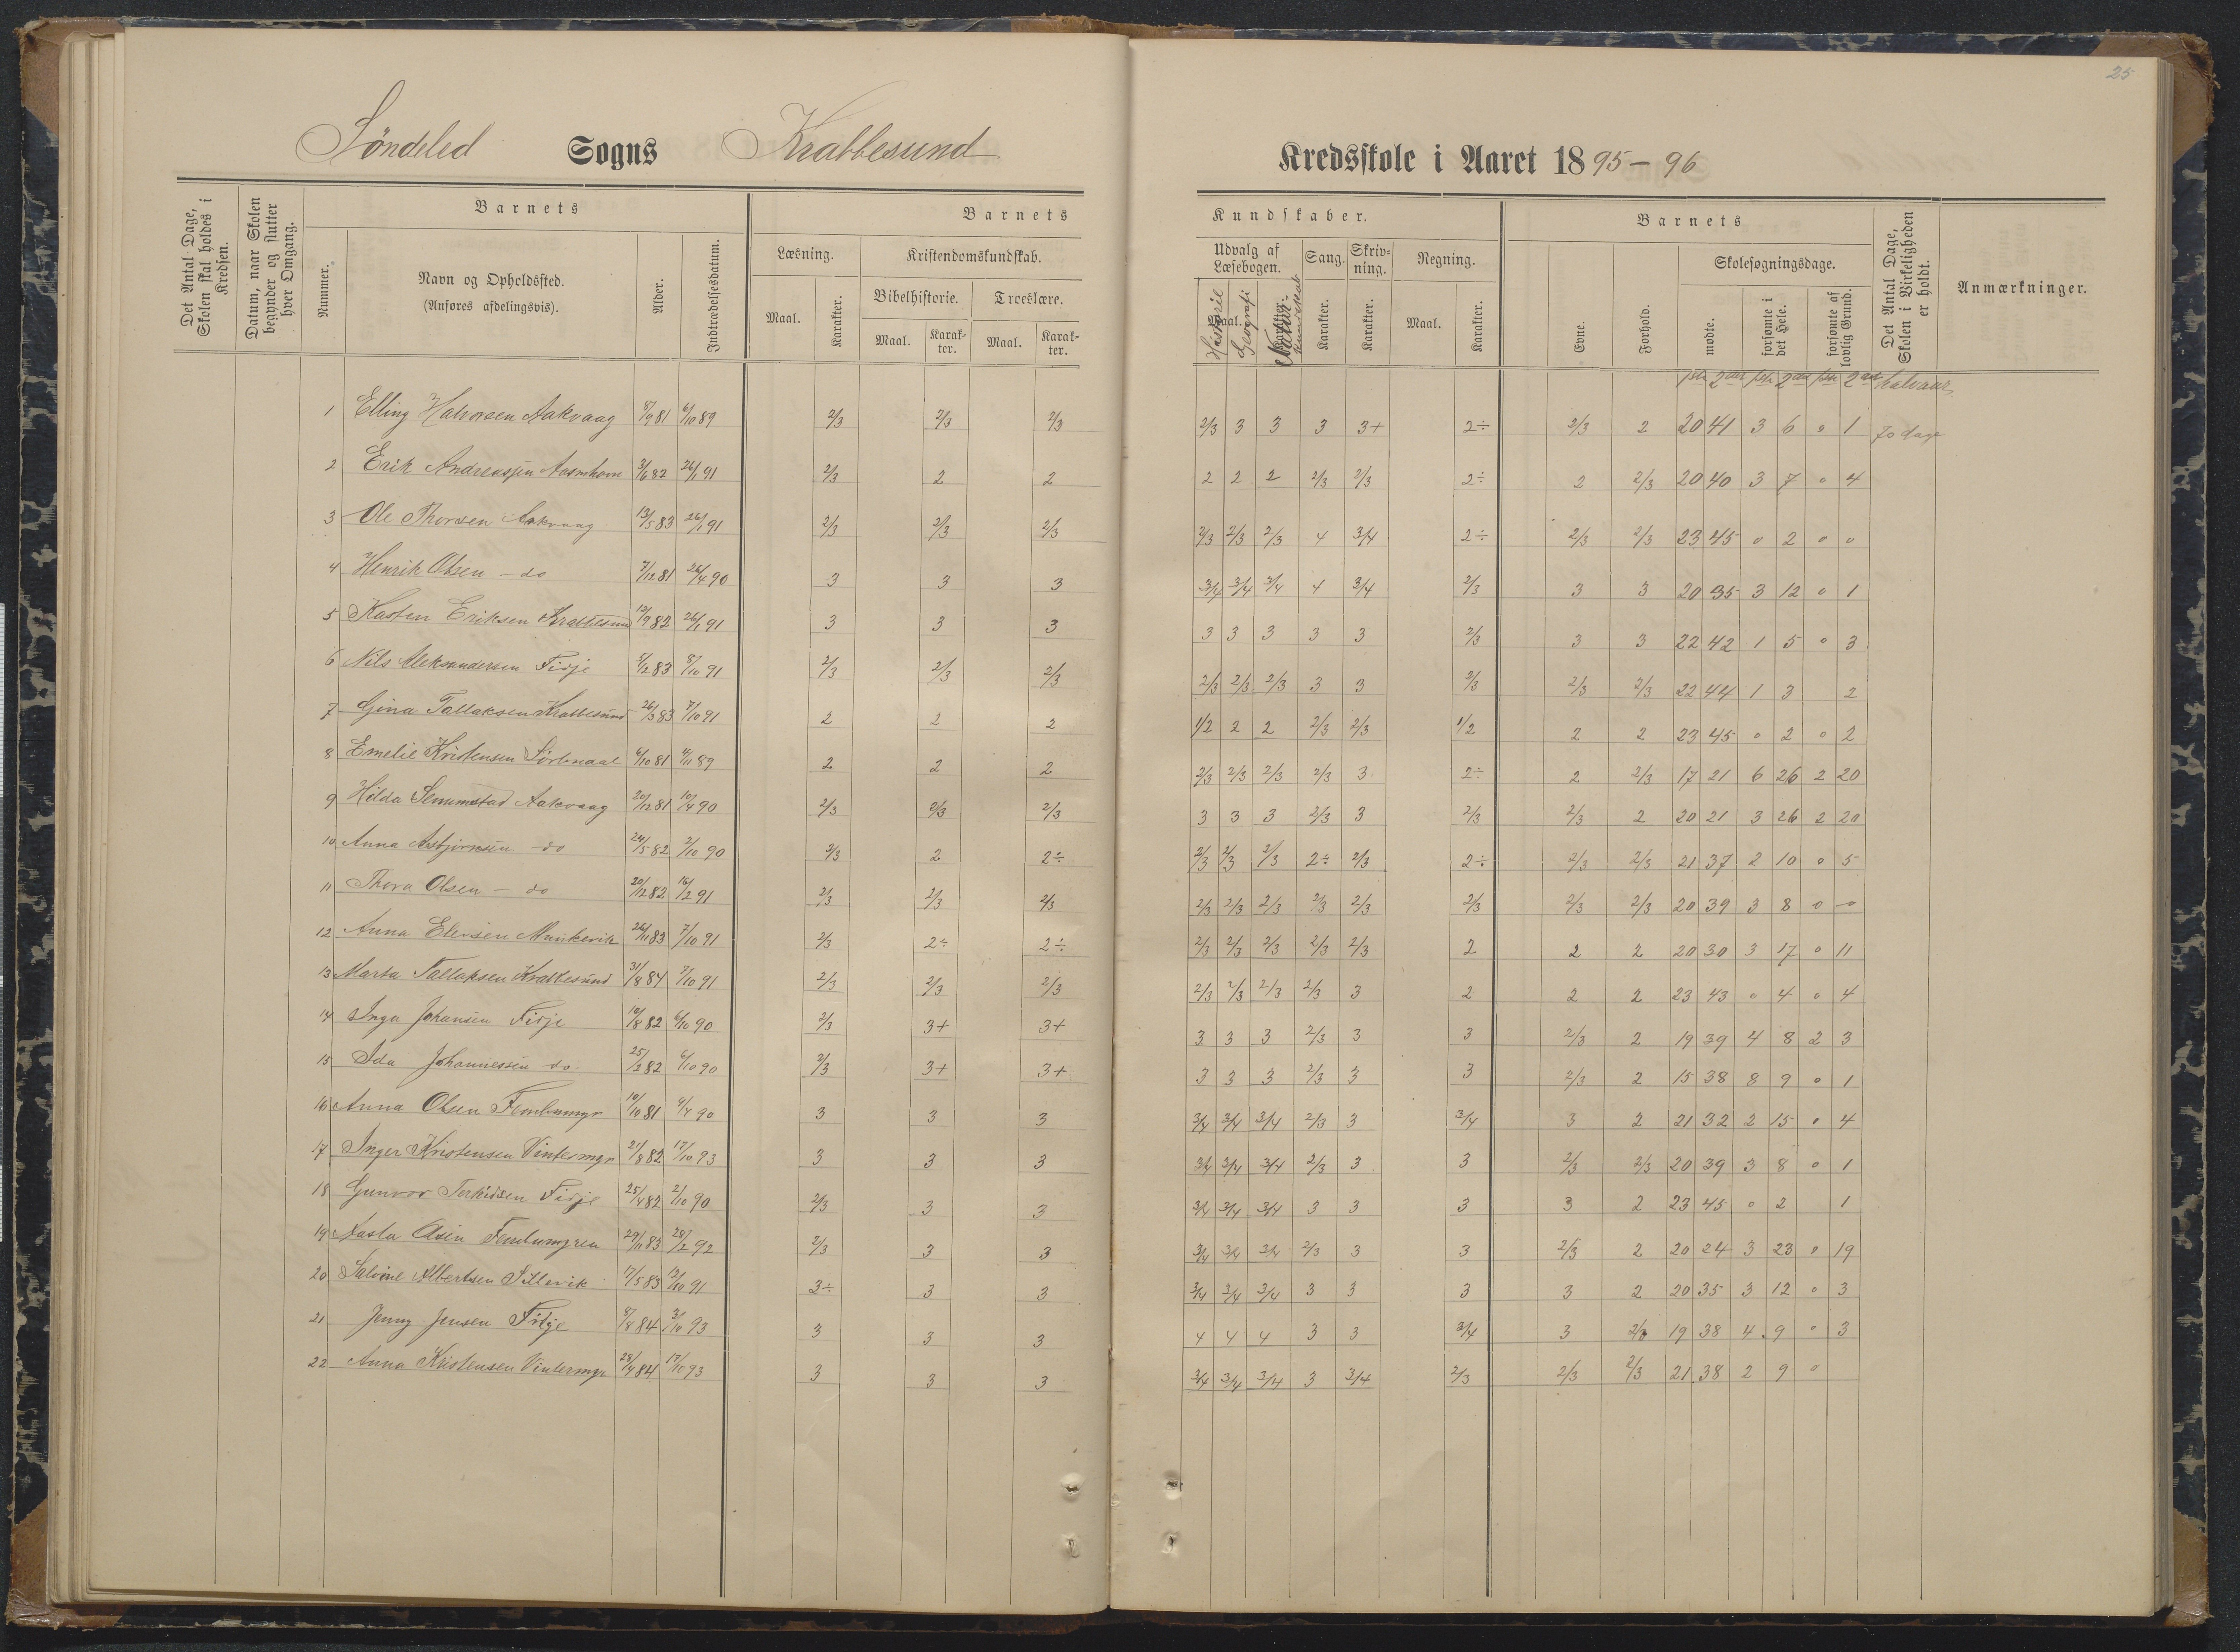 25
Søndeled Sogns Krabbesund Kredsskole i Aaret 1895-96
Det Antal Dage, Skolen skal holdes i Kredsen.
Datum, naar Skolen begynder og slutter hver Omgang.
Barnets
Nummer.
Navn og Opholdssted.
(Anføres afdelingsvis).
Alder.
Indtrædelsesdatum.
Barnets Kundskaber.
Læsning.
Maal. Karakter.
Kristendomskundskab.
Bibelhistorie. Troeslære.
Maal. Karakter. Maal. Karakter.
Udvalg af Læsebogen.
Maal.
Historie Geografi Naturkundskab
Sang. Skrivning. Regning.
Karakter. Karakter. Maal. Karakter.
Barnets
Evne. Forhold.
Skolesøgningsdage.
mødte. forsømte i det Hele. forsømte af lovlig Grund.
Det Antal Dage, Skolen i Virkeligheden er holdt.
Anmærkninger.
1ste 2det 1ste 2det 1ste 2det halvaar
1 Elling Halvorsen Aakvaag 8/9 81 6/10 89 2/3 2/3 2/3 2/3 3 3 3 3+ 2÷ 2/3 2 20 41 3 6 0 1 70 dage
2 Erik Andreassen 3/6 82 26/1 91 2/3 2 2 2 2 2 2/3 2/3 2÷ 2 2/3 20 40 3 7 0 4
3 Ole Thorsen Aakvaag 13/5 83 26/1 91 2/3 2/3 2/3 2/3 2/3 2/3 4 3/4 2÷ 2/3 2/3 23 45 0 2 0 0
4 Henrik Olsen - do 7/12 81 26/4 90 3 3 3 3/4 3/4 3/4 4 3/4 2/3 3 3 20 35 3 12 0 1
5 Kasten Eriksen Krabbesund 12/9 82 26/1 91 3 3 3 3 3 3 3 3 2/3 3 3 22 42 1 5 0 3
6 Nils Aleksandersen Fidje 5/12 83 8/10 91 2/3 2/3 2/3 2/3 2/3 2/3 3 3 2/3 2/3 2/3 22 44 1 3 2
7 Gina Tallaksen Krabbesund 26/3 83 7/10 91 2 2 2 1/2 2 2 2/3 2/3 1/2 2 2 23 45 0 2 0 2
8 Emelie Kristensen 6/10 81 4/11 89 2 2 2 2/3 2/3 2/3 2/3 3 2÷ 2 2/3 17 21 6 26 2 20
9 Hilda Aakvaag 20/12 81 10/4 90 2/3 2/3 2/3 3 3 3 2/3 3 2/3 2/3 2 20 21 3 26 2 20
10 Anna Asbjørnsen - do 24/5 82 2/10 90 2/3 2 2÷ 2/3 2/3 2/3 2÷ 2/3 2÷ 2/3 2/3 21 37 2 10 0 5
11 Thora Olsen - do 20/12 82 16/2 91 2/3 2/3 2/3 2/3 2/3 2/3 2/3 2/3 2/3 2/3 2/3 20 39 3 8 0 0
12 Anna Elevsen 26/11 83 7/10 91 2/3 2÷ 2÷ 2/3 2/3 2/3 2/3 2/3 2 2 2 20 30 3 17 0 11
13 Marta Tallaksen Krabbesund 31/8 84 7/10 91 2/3 2/3 2/3 2/3 2/3 2/3 2/3 3 2 2 2 23 43 0 4 0 4
14 Inga Johansen Fidje 10/8 82 6/10 90 2/3 3+ 3+ 3 3 3 2/3 3 3 2/3 2 19 39 4 8 2 3
15 Ida Johannessen do. 25/2 82 6/10 90 2/3 3+ 3+ 3 3 3 2/3 3 3 2/3 2 15 38 8 9 0 1
16 Anna Olsen 10/10 81 9/4 90 3 3 3 3/4 3/4 3/4 2/3 3 3/4 3 2 21 32 2 15 0 4
17 Inger Kristensen Vintermyr 21/8 82 17/10 93 3 3 3 3/4 3/4 3/4 2/3 3 3 2/3 2/3 20 39 3 8 0 1
18 Gunvor Terkildsen Fidje 25/4 82 2/10 90 2/3 3 3 3/4 3/4 3/4 3 3 3 3 2 23 45 0 2 1
19 29/11 83 28/2 92 2/3 3 3 3/4 3/4 3/4 2/3 3 3 2/3 2 20 24 3 23 0 19
20 Salvine Albertsen Sillevik 17/5 83 12/10 91 3÷ 3 3 3/4 3/4 3/4 3 3 3 3 2 20 35 3 12 0 3
21 Jenny Jensen Fidje 8/8 84 3/10 93 3 3 3 4 4 4 3 3 3/4 3 2/3 19 38 4 9 0 3
22 Anna Kristensen Vintermyr 28/4 84 17/10 93 3 3 3 3/4 3/4 3/4 3 3/4 2/3 2/3 2/3 21 38 2 9 0